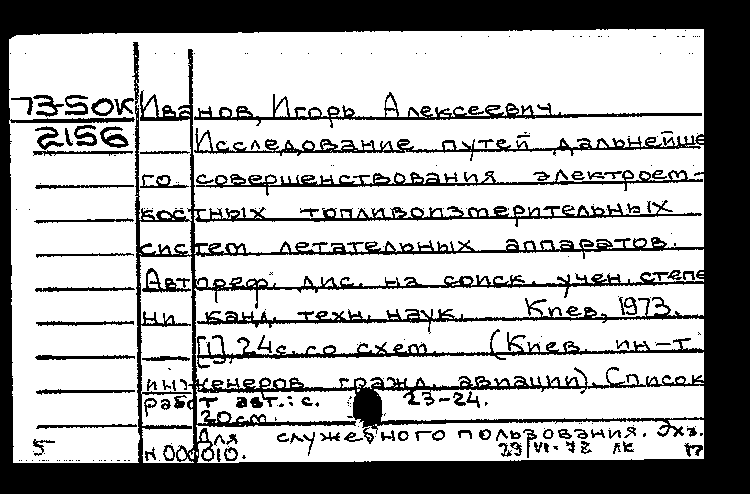 73-50К Иванов, Игорь Алексеевич.
2156 Исследование путей дальнейше
го совершенствования электроем-
костных топливоизмерительных
систем летательных аппаратов.
Автореф. дис. на соиск. учен. степе
ни канд. техн. наук. Киев, 1973.
[1], 24 с. со схем. (Киев. ин-т
инженеров гражд. авиации). Список
работ авт.: с. 23-24.
20 см.
Для служебного пользования. Экз.
5 н. 000010. 29/VI-78 ЛК 17